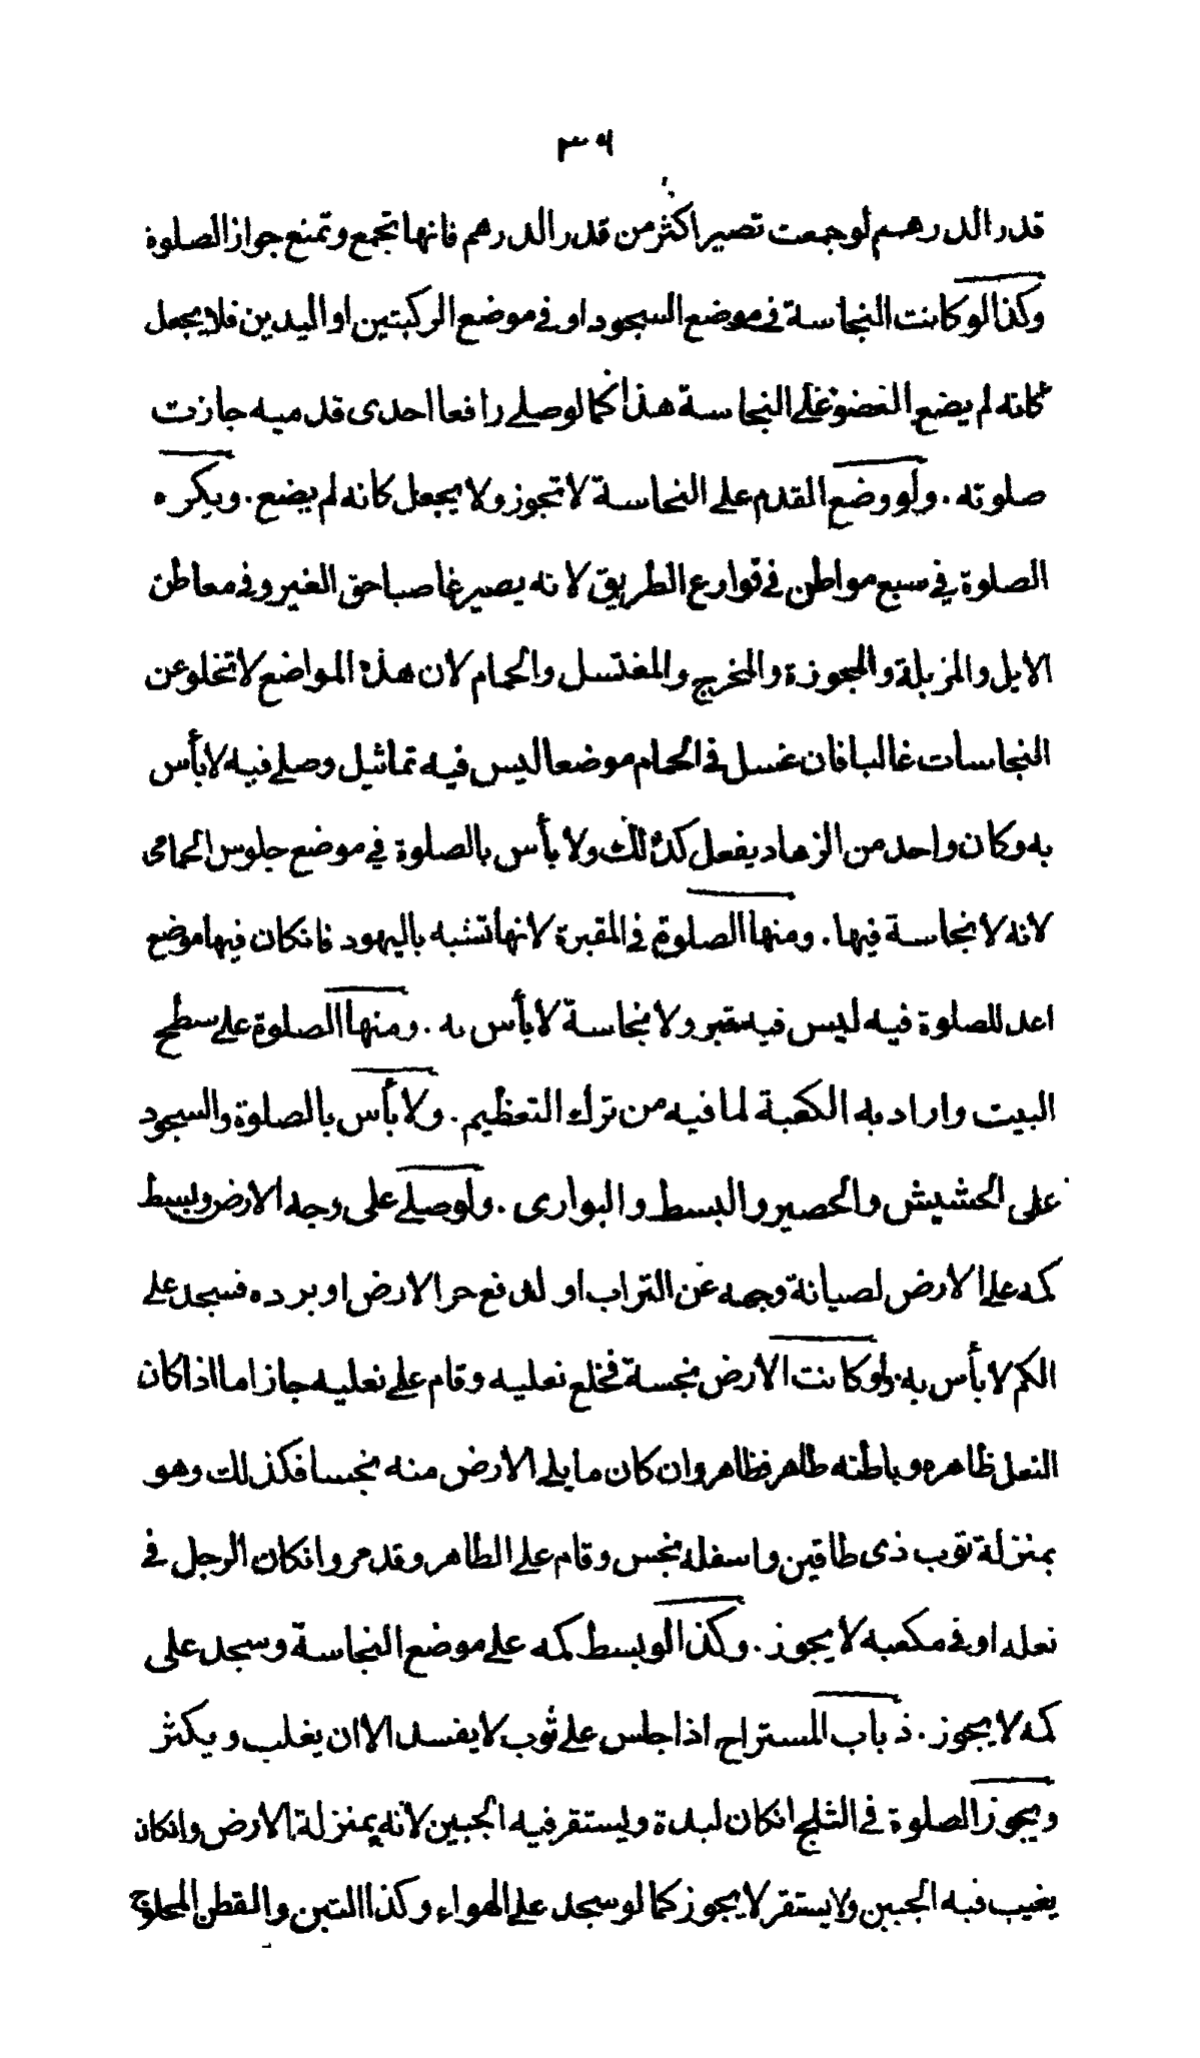 ٣٩
قدر الدرهم لو جمعت تصير اكثر من قدر الدرهم فانها تجمع وتمنع جواز الصلوة
وكذا لو كانت النجاسة في موضع السجود او في موضع الركبتين او اليدين فلا يجعل
كانه لم يضع العضو على النجاسة هذا كما لو صلى رافعا احدى قدميه جازت
صلوته . ولو وضع القدم على النجاسة لا تجوز ولا يجعل كانه لم يضع . ويكره
الصلوة في سبع مواطن في قوارع الطريق لانه يصير غاصبا حق الغير وفي معاطن
الابل والمزبلة والمجوزة والمخرج والمغتسل والحمام لان هذه المواضع لا تخلو عن
النجاسات غالبا فان غسل في الحمام موضعا ليس فيه تماثيل وصلى فيه لا بأس
به وكان واحد من الزهاد يفعل كذلك ولا بأس بالصلوة في موضع جلوس الحمامى
لانه لا نجاسة فيها . ومنها الصلوة في المقبرة لانها تشبه باليهود فانكان فيها موضع
اعد للصلوة فيه ليس فيه قبر ولا نجاسة لا بأس به . ومنها الصلوة على سطح
البيت واراد به الكعبة لما فيه من ترك التعظيم . ولا بأس بالصلوة والسجود
على الحشيش والحصير والبسط والبوارى . ولو صلى على وجه الارض وبسط
كمه على الارض لصيانة وجهه عن التراب او لدفع حر الارض او برده فسجد على
الكم لا بأس به . ولو كانت الارض نجسة فخلع نعليه وقام على نعليه جاز اما اذا كان
النعل ظاهره وباطنه طاهر فظاهر وان كان ما يلى الارض منه نجسا فكذلك وهو
بمنزلة ثوب ذى طاقين واسفله نجس وقام على الطاهر وقد مر وانكان الرجل في
نعله او في مكعبه لا يجوز . وكذا لو بسط كمه على موضع النجاسة وسجد على
كمه لا يجوز . ذباب المستراح اذا جلس على ثوب لا يفسد الا ان يغلب ويكثر
ويجوز الصلوة في الثلج انكان لبدة ويستقر فيه الجبين لانه بمنزلة الارض وانكان
يغيب فيه الجبين ولا يستقر لا يجوز كما لو سجد على الهواء وكذا التبن والقطن المحلوج